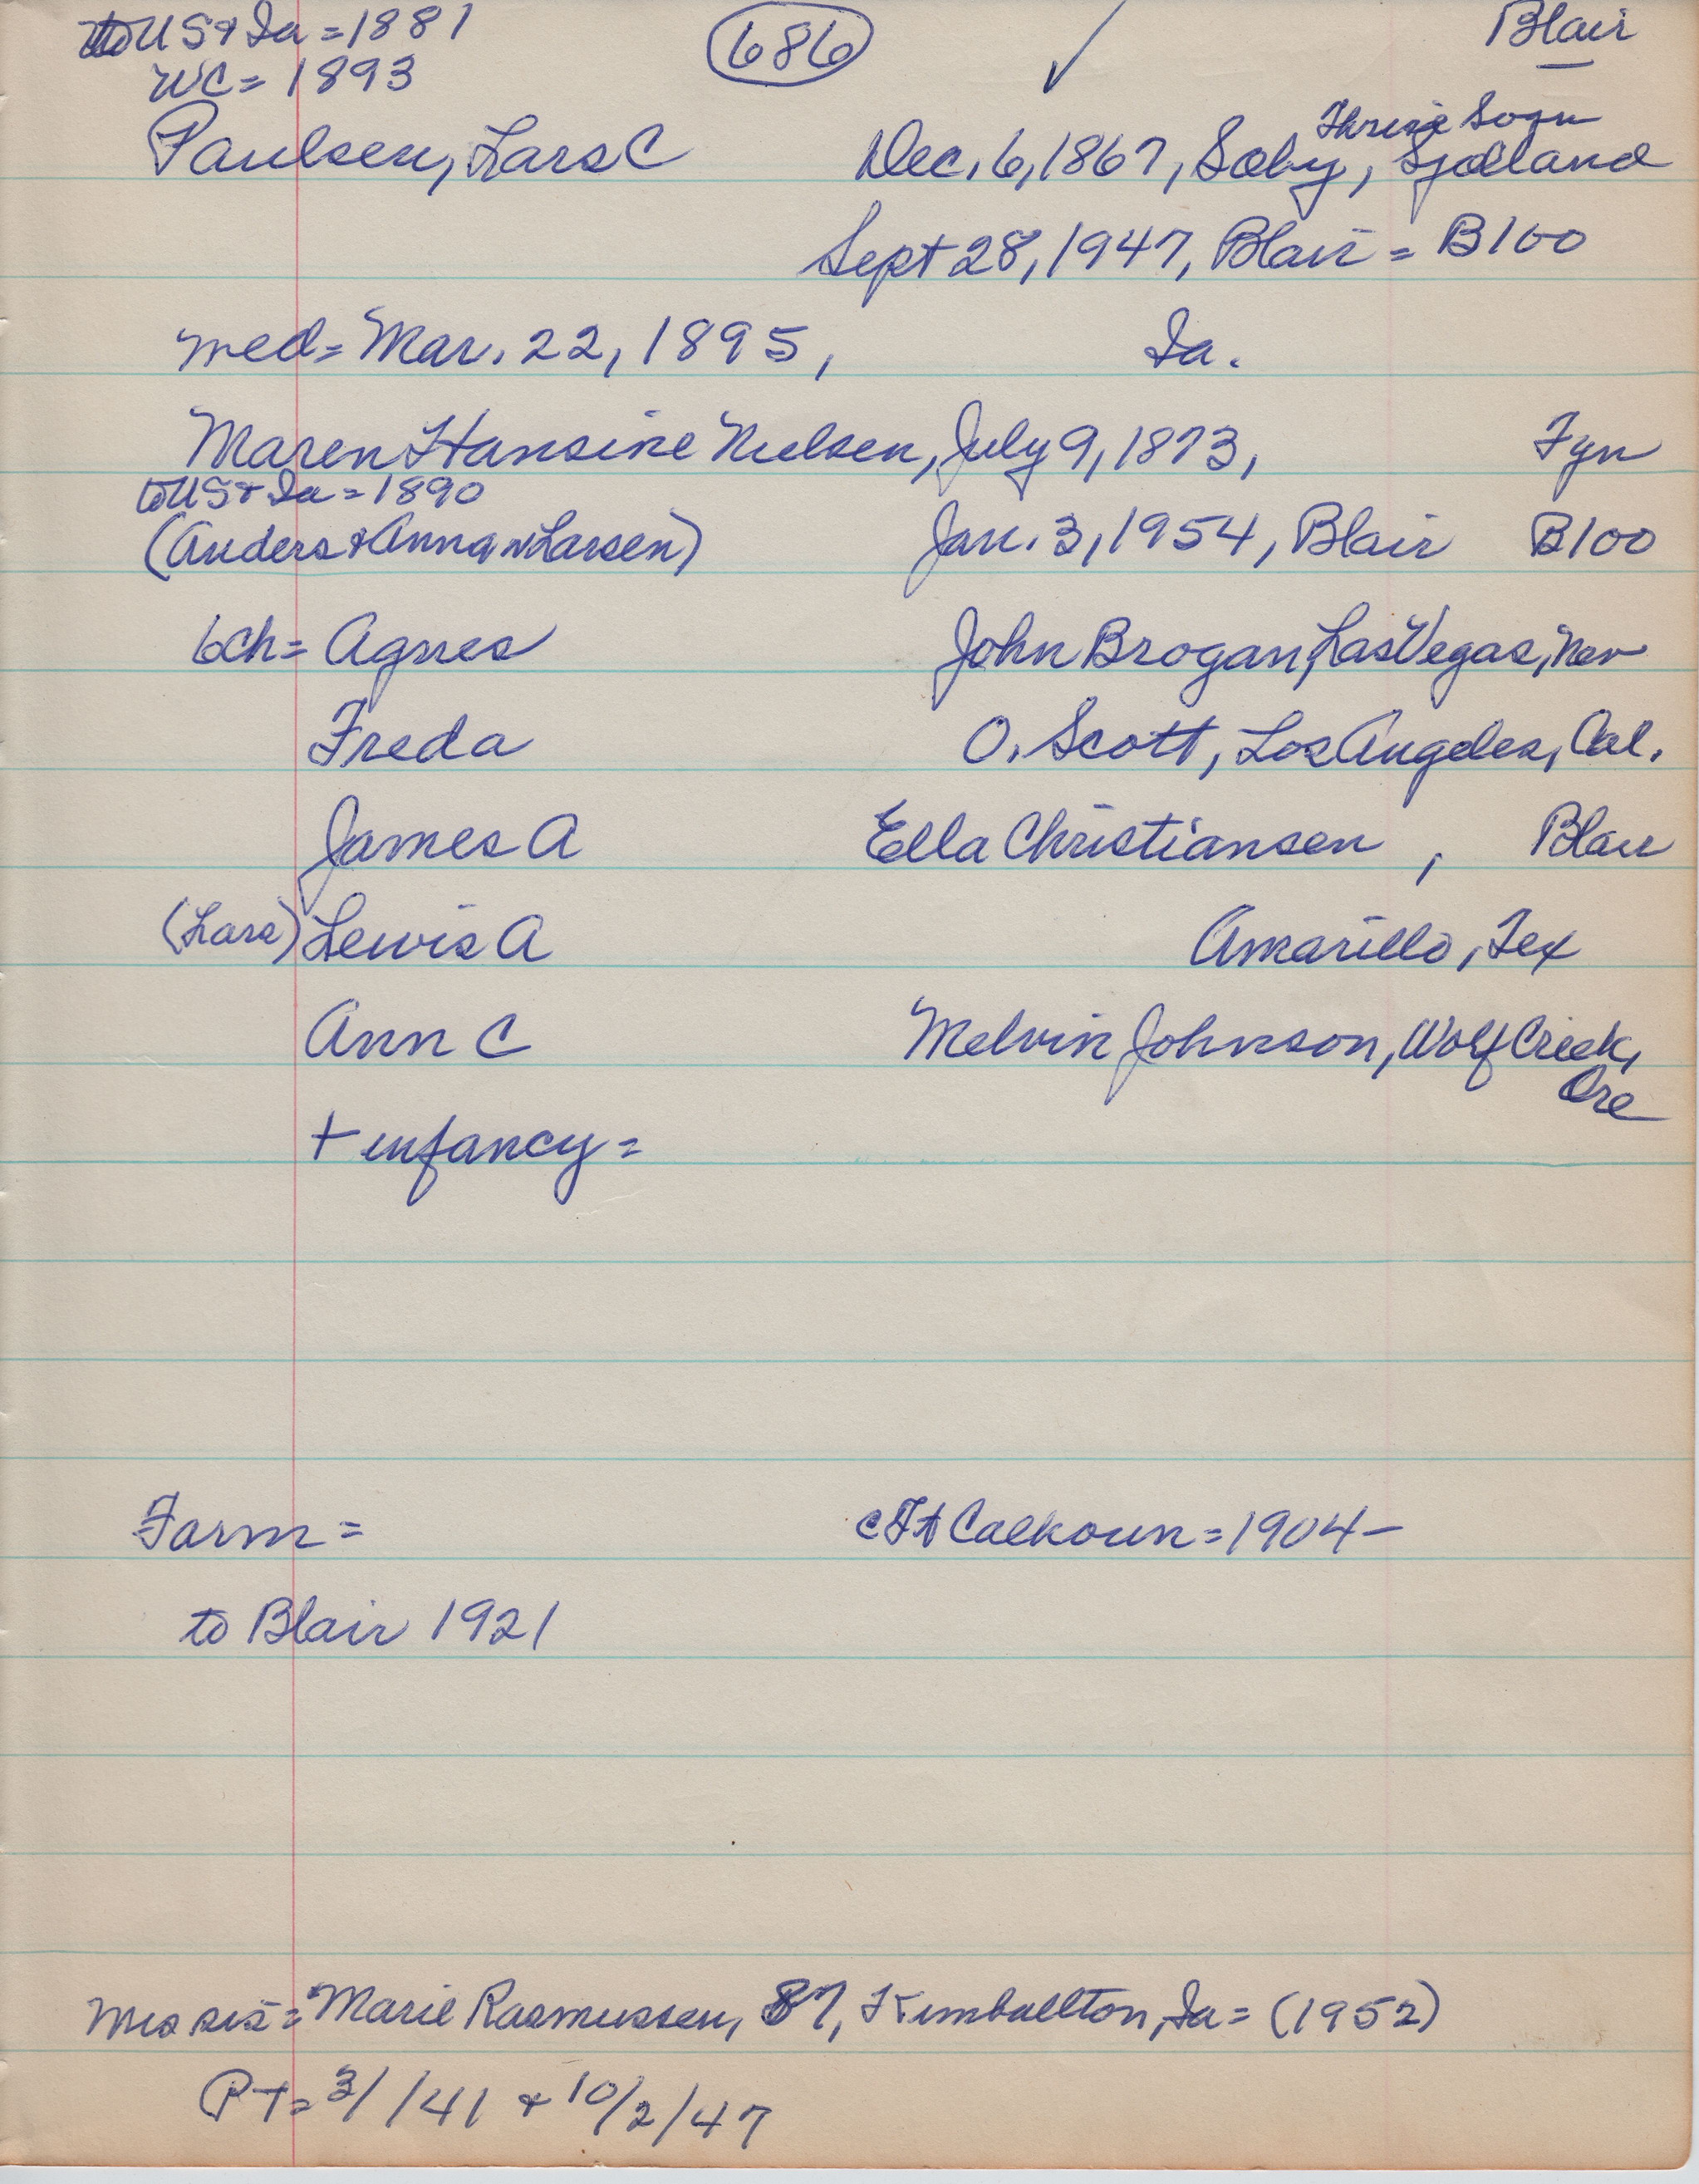 to US & Ia = 1881
686 ✓ Blair
WC = 1893
Thrise Sogn
Paulsen, Lars C Dec. 6, 1867, Soby, Sjælland
Sept 28, 1947, Blair = B100
med = Mar. 22, 1895, Ia.
Maren Hansine Nielsen, July 9, 1873, Fyn
to US & Ia = 1890
(Anders & Anna n Larsen) Jan. 3, 1954, Blair B100
6ch = Agnes John Brogan, Las Vegas, Nev
Freda O. Scott, Los Angeles, Cal.
James A Ella Christiansen, Blair
(Lars) Lewis A Amarillo, Tex
Ann C Melvin Johnson, Wolf Creek,
Ore
+ infancy =
Farm = c Ft Calhoun = 1904 –
to Blair 1921
Mrs sis = Marie Rasmussen, 87, Kimballton, Ia = (1952)
PT = 3/ /41 & 10/2/47